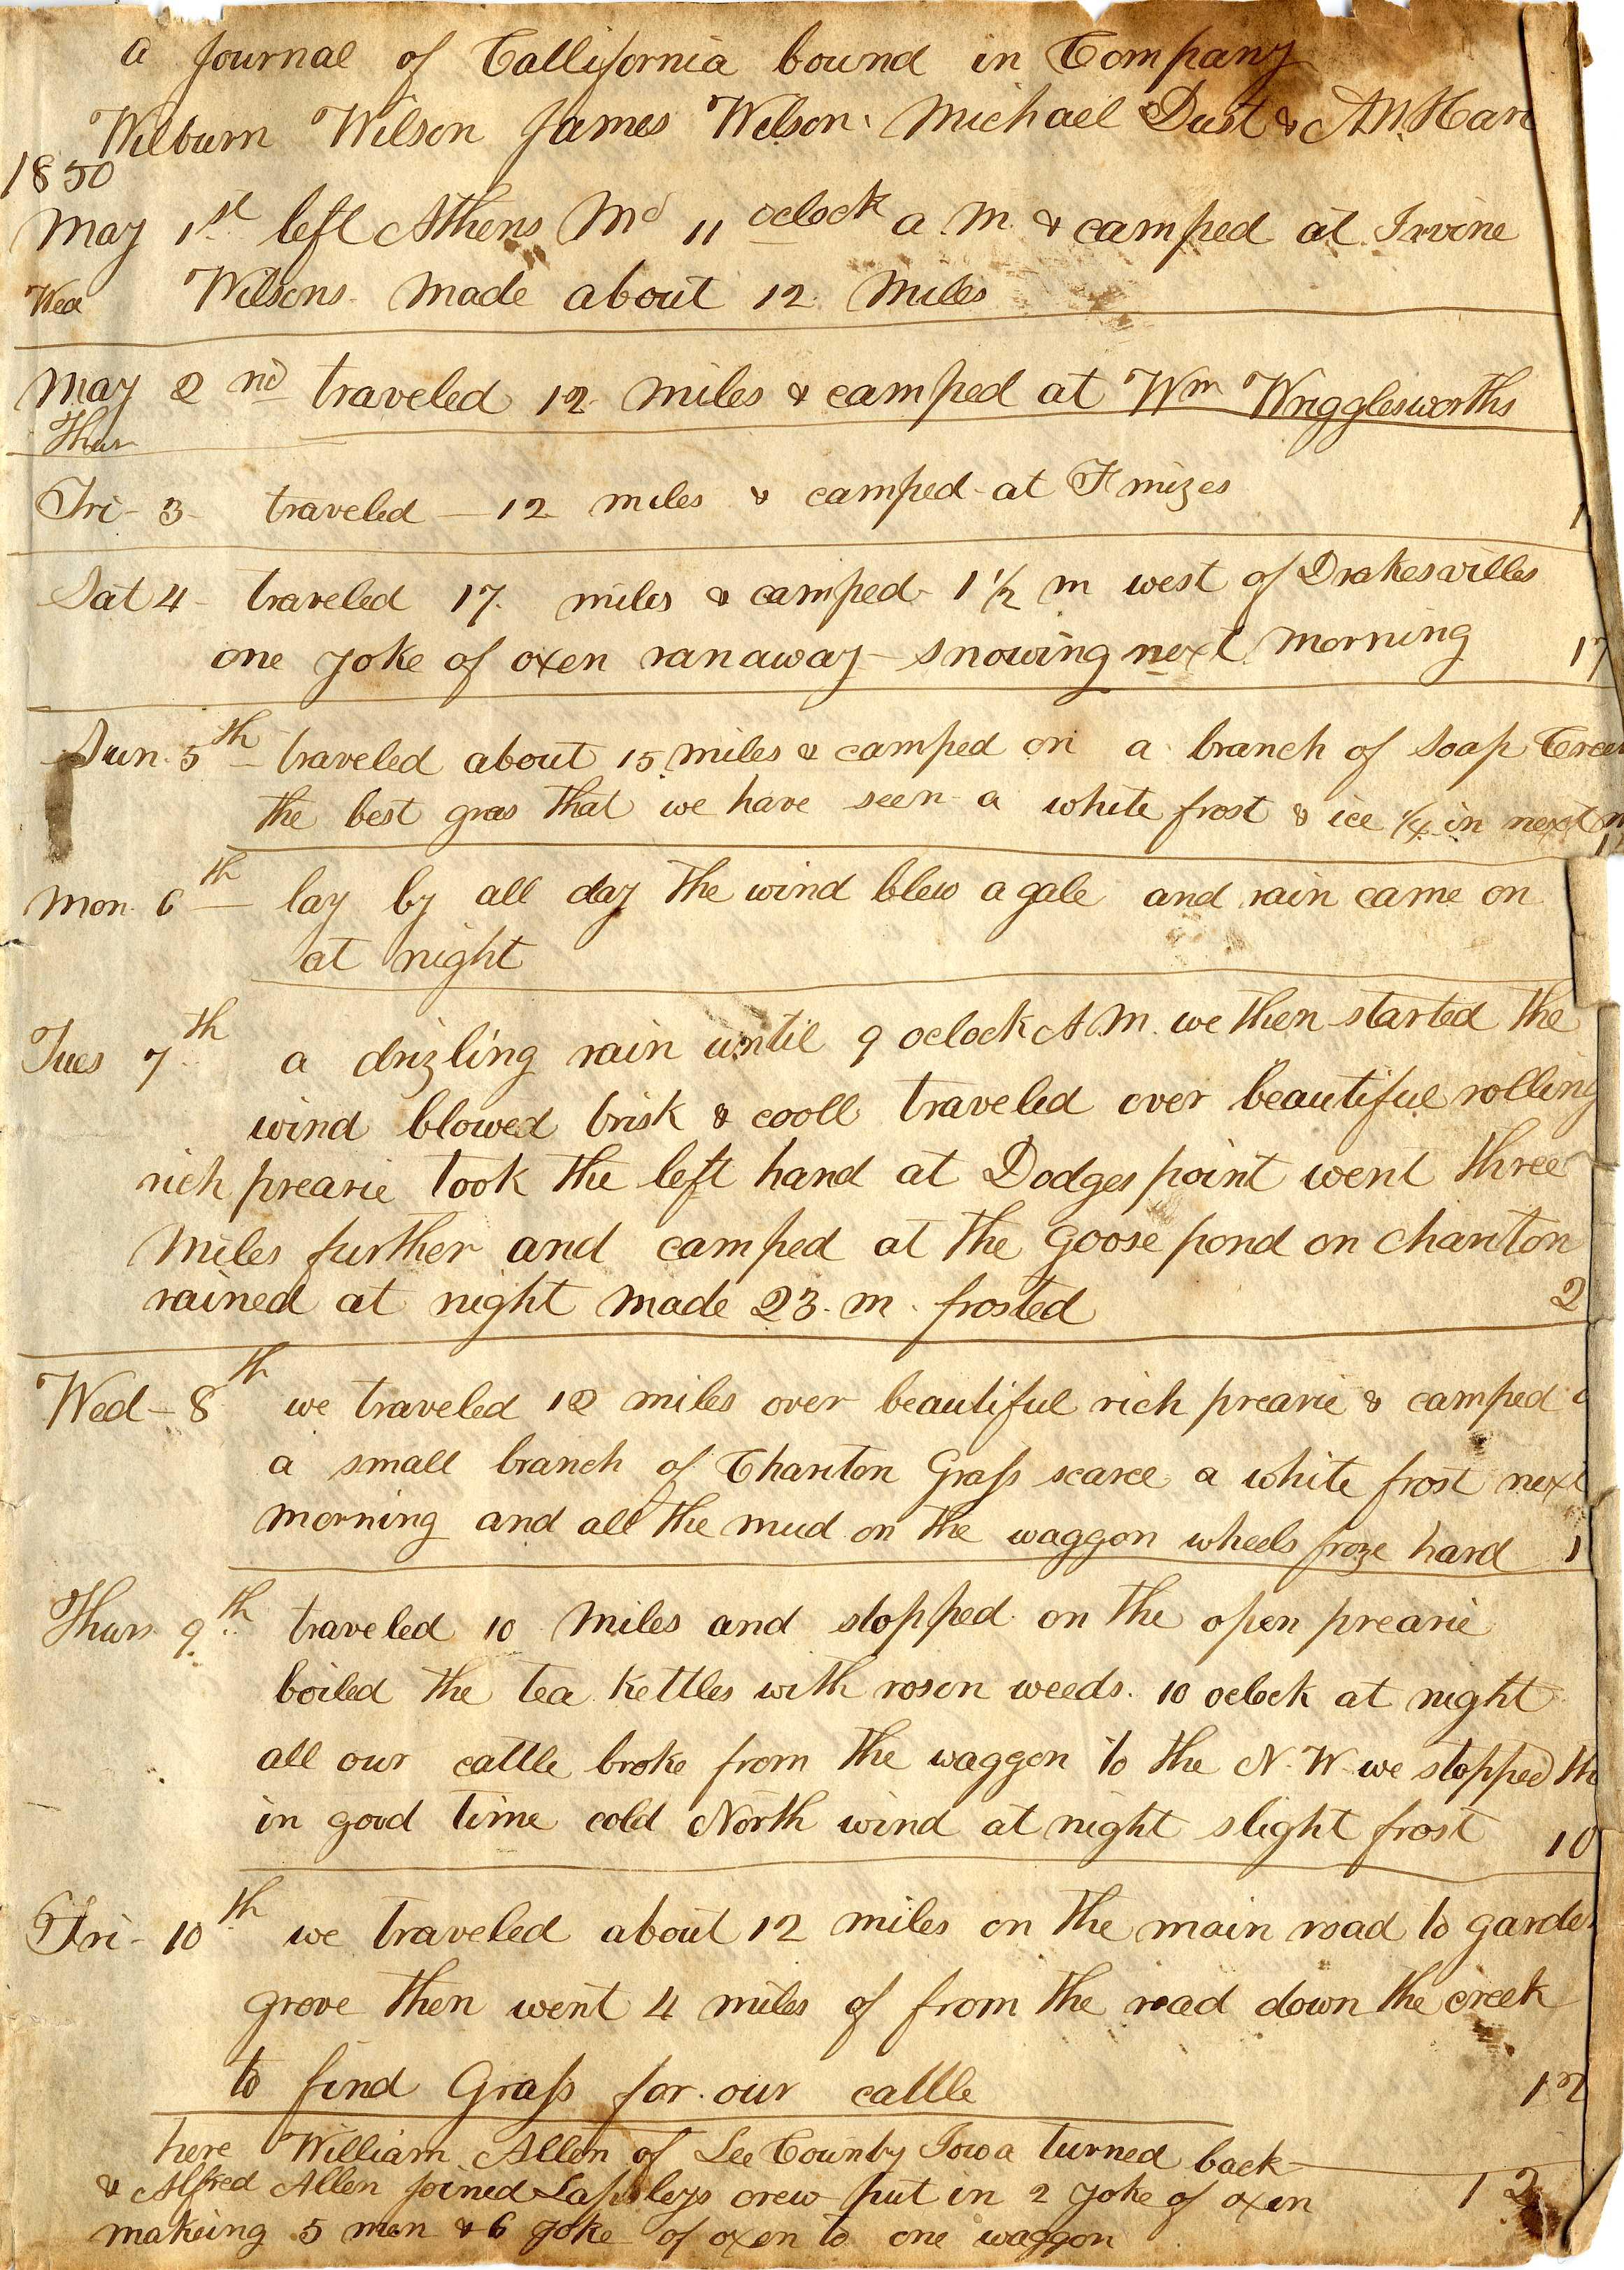 a Journal of Callifornia bound in Company
Wilburn Wilson James Wilson. Michael Dust & A M Har
1850
May 1st left Athens Mo 11 oclock a m & camped at Irvine
Wed Wilsons. Made about 12 Miles
May 2nd traveled 12 miles & camped at Wm Wrigglesworths
Thur
Fri - 3 - traveled - 12 miles & camped - at F mizes
Sat 4 - traveled 17. miles & camped - 1 1/2 m west of Drakesvilles
one yoke of oxen ran away - snowing next morning 17
Sun. 5th - traveled about 15 miles & camped on a branch of Soap Creek
the best gras that we have seen - a white frost & ice 1/4 in next
Mon. 6th - lay by all day the wind blew a gale and rain came on
at night
Tues 7th a drizling rain until 9 oclock A M. we then started the
wind blowed brisk & cooll traveled over beautiful rolling
rich prearie took the left hand at Dodges point went three
Miles further and camped at the Goose pond on Chariton
rained at night made 23. m. frosted 2
Wed - 8th we traveled 12 miles over beautiful rich prearie & camped
a small branch of Chariton Grass scarce a white frost next
morning and all the mud on the waggon wheels froze hard 1
Thurs. 9th traveled 10 Miles and stopped on the open prearie
boiled the tea kettles with rosin weeds. 10 oclock at night
all our cattle broke from the waggon to the N. W we stopped th
in good time cold North wind at night slight frost 10
Fri - 10th we traveled about 12 miles on the main road to garden
grove then went 4 miles of from the road down the creek
to find Grass for our cattle 12
here William Allen of Lee County Iowa turned back
& Alfred Allen joined Lapsleys crew put in 2 yoke of oxen 12
makeing 5 men & 6 yoke of oxen to one waggon